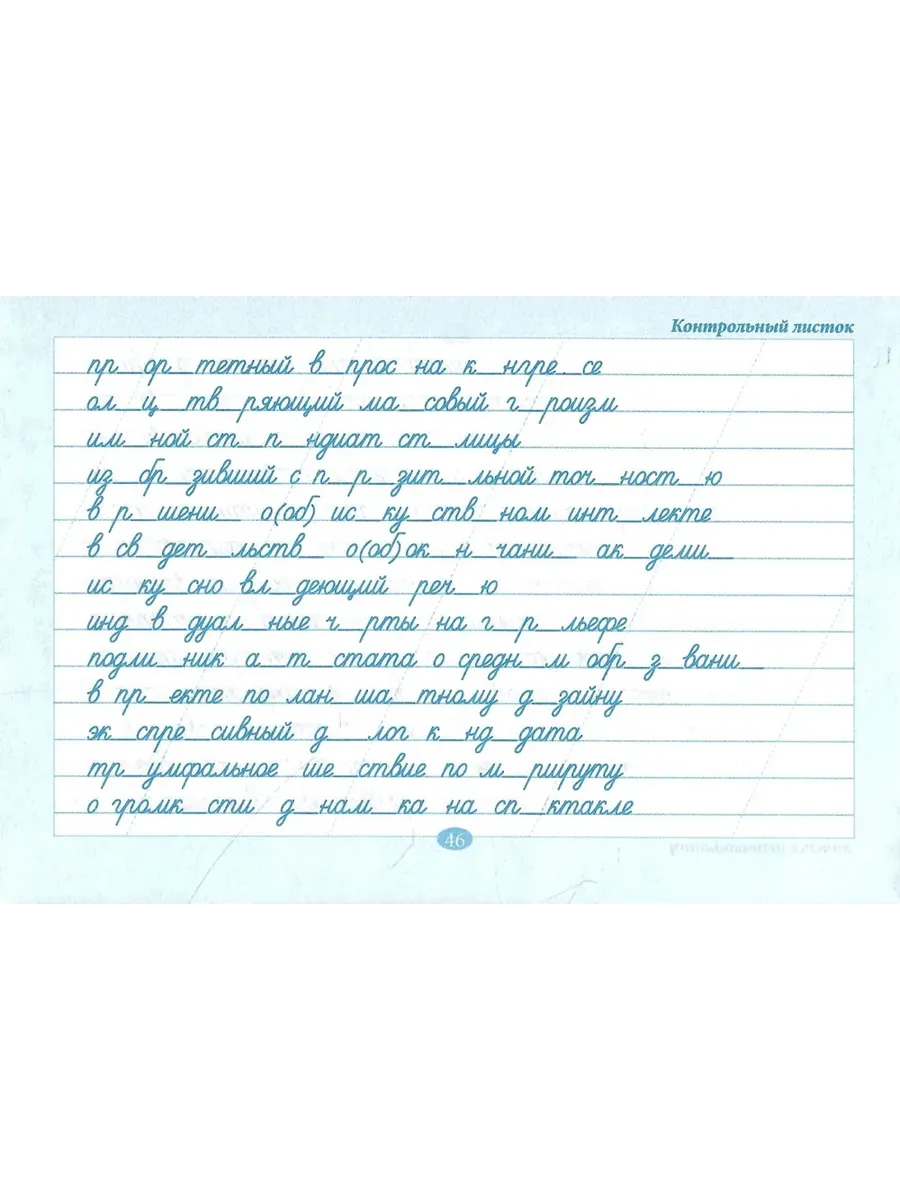 Контрольный листок
пр__ор__тетный в__прос на к__нгре__се
ол__ц__тв__ряющий ма__совый г__роизм
им__ной ст__п__ндиат ст__лицы
из__бр__зивший с п__р__зит__льной точ__ност__ю
в р__шени__ о(об) ис__ку__ств__ном инт__лекте
в св__дет__льств__ о(об)ок__н__чани__ ак__деми__
ис__ку__сно вл__деющий реч__ю
инд__в__дуал__ные ч__рты на г__р__льефе
подли__ник а__т__стата о средн__м обр__з__вани__
в пр__екте по лан__ша__тному д__зайну
эк__спре__сивный д__лог к__нд__дата
тр__умфальное ше__ствие по м__ршруту
о громк__сти д__нам__ка на сп__ктакле
46